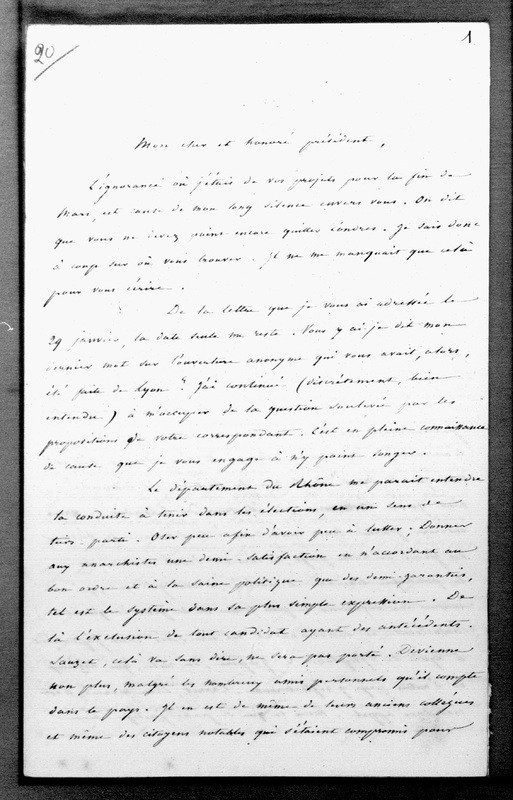 20
1
Mon cher et honoré président,
L'ignorance où j'étais de vos projets pour la fin de
Mars, est cause de mon long silence envers vous. On dit
que vous ne devez point encore quitter Londres. Je sais donc
à coup sur où vous trouver. Il ne me manquait que cela
pour vous écrire.
De la lettre que je vous ai adressée le
29 janvier, la date seule me reste. Vous y ai je dit mon
dernier mot sur l'ouverture anonyme qui vous avait, alors,
été faite de Lyon ? J'ai continué (discrètement, bien
entendu) à m'occuper de la question soulevée par les
propositions de votre correspondant. C'est en pleine connaissance
de cause que je vous engage à n'y point songer.
Le département du Rhône me parait entendre
la conduite à tenir dans les élections, en un sens de
tiers-parti. Oser peu afin d'avoir peu à lutter ; Donner
aux anarchistes une demi-satisfaction en n'accordant au
bon ordre et à la saine politique que des demi-garanties,
tel est le système dans sa plus simple expression. De
là l'exclusion de tout candidat ayant des antécédents.
Sauzet, celà va sans dire, ne sera pas porté. Devienne
non plus, malgré les nombreux amis personnels qu'il compte
dans le pays. Il en est de même de leurs anciens collègues
et même des citoyens notables qui s'étaient compromis pour